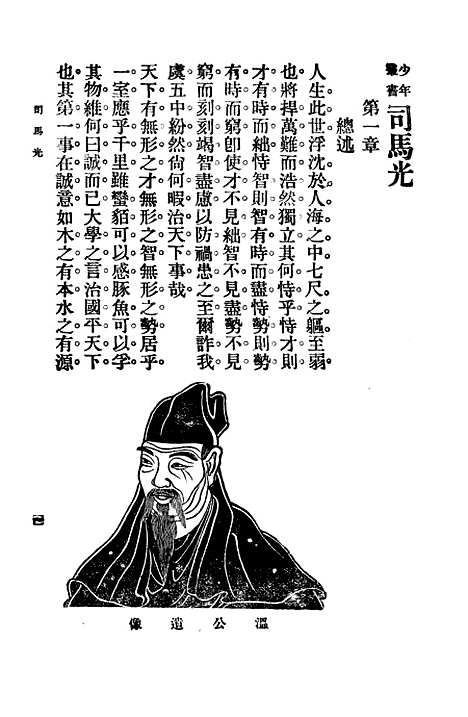 少年叢書
司馬光
第一章
總述
人生此世。浮沈於人海之中。七尺之軀。至弱
也。將捍萬難而浩然獨立。其何恃乎。恃才。則
才有時而絀。恃智。則智有時而盡。恃勢。則勢
有時而窮。卽使才不見絀。智不見盡。勢不見
窮。而刻刻竭智盡慮以防禍患之至。爾詐我
虞。五中紛然。尙何暇治天下事哉。
天下有無形之才。無形之智。無形之勢。居乎
一室。應乎千里。雖蠻貊可以感。豚魚可以孚。
其物維何。曰誠而已。大學之言治國平天下
也。其第一事在誠意。如木之有本。水之有源。
溫公遺像
司馬光
一